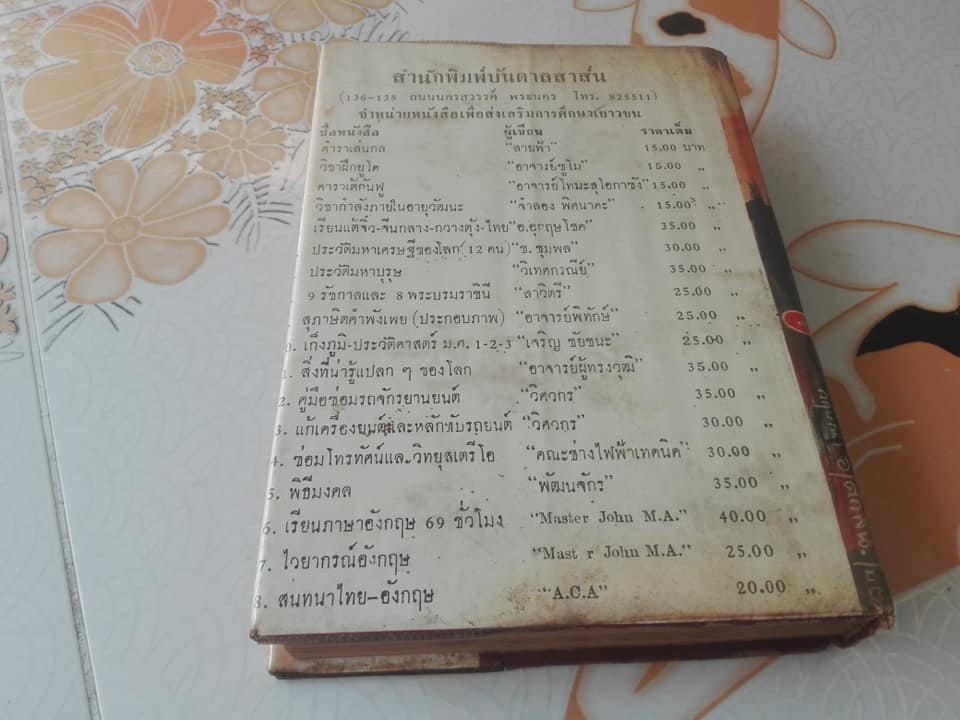 สำนักพิมพ์บันดาลสาส์น
(136-138 ถนนนครสวรรค์ พระนคร โทร. 825511)
จำหน่ายหนังสือเพื่อส่งเสริมการศึกษาเยาวชน
ชื่อหนังสือ ผู้เขียน ราคาเต็ม
ตำราเล่นกล "สายฟ้า" 15.00 บาท
วิชาฝึกยูโด "อาจารย์ซูโม" 15.00 "
คาราเต้กันฟู "อาจารย์โทมะสุโอกาซัง" 15.00 "
วิชากำลังภายในอายุวัฒนะ "จำลอง พิศนาคะ" 15.00 "
เรียนแต้จิ๋ว-จีนกลาง-กวางตุ้ง-ไทย "อ.อุฤษโชค" 35.00 "
ประวัติมหาเศรษฐีของโลก (12 คน) "ช. ชุมพล" 30.00 "
ประวัติมหาบุรุษ "วิเทศกรณีย์" 35.00 "
9 รัชกาลและ 8 พระบรมราชินี "สาวิตรี" 25.00 "
สุภาษิตคำพังเพย (ประกอบภาพ) "อาจารย์พิทักษ์" 25.00 "
0. เก็งภูมิ-ประวัติศาสตร์ ม.ศ. 1-2-3 "เจริญ ชัยชนะ" 25.00 "
1. สิ่งที่น่ารู้แปลก ๆ ของโลก "อาจารย์ผู้ทรงวุฒิ" 35.00 "
2. คู่มือซ่อมรถจักรยานยนต์ "วิศวกร" 35.00 "
3. แก้เครื่องยนต์และหลักขับรถยนต์ "วิศวกร" 30.00 "
4. ซ่อมโทรทัศน์และวิทยุสเตรีโอ "คณะช่างไฟฟ้าเทคนิค" 30.00 "
5. พิธีมงคล "พัฒนจักร" 35.00 "
6. เรียนภาษาอังกฤษ 69 ชั่วโมง "Master John M.A." 40.00 "
7. ไวยากรณ์อังกฤษ "Mast r John M.A." 25.00 "
8. สนทนาไทย-อังกฤษ "A.C.A" 20.00 "